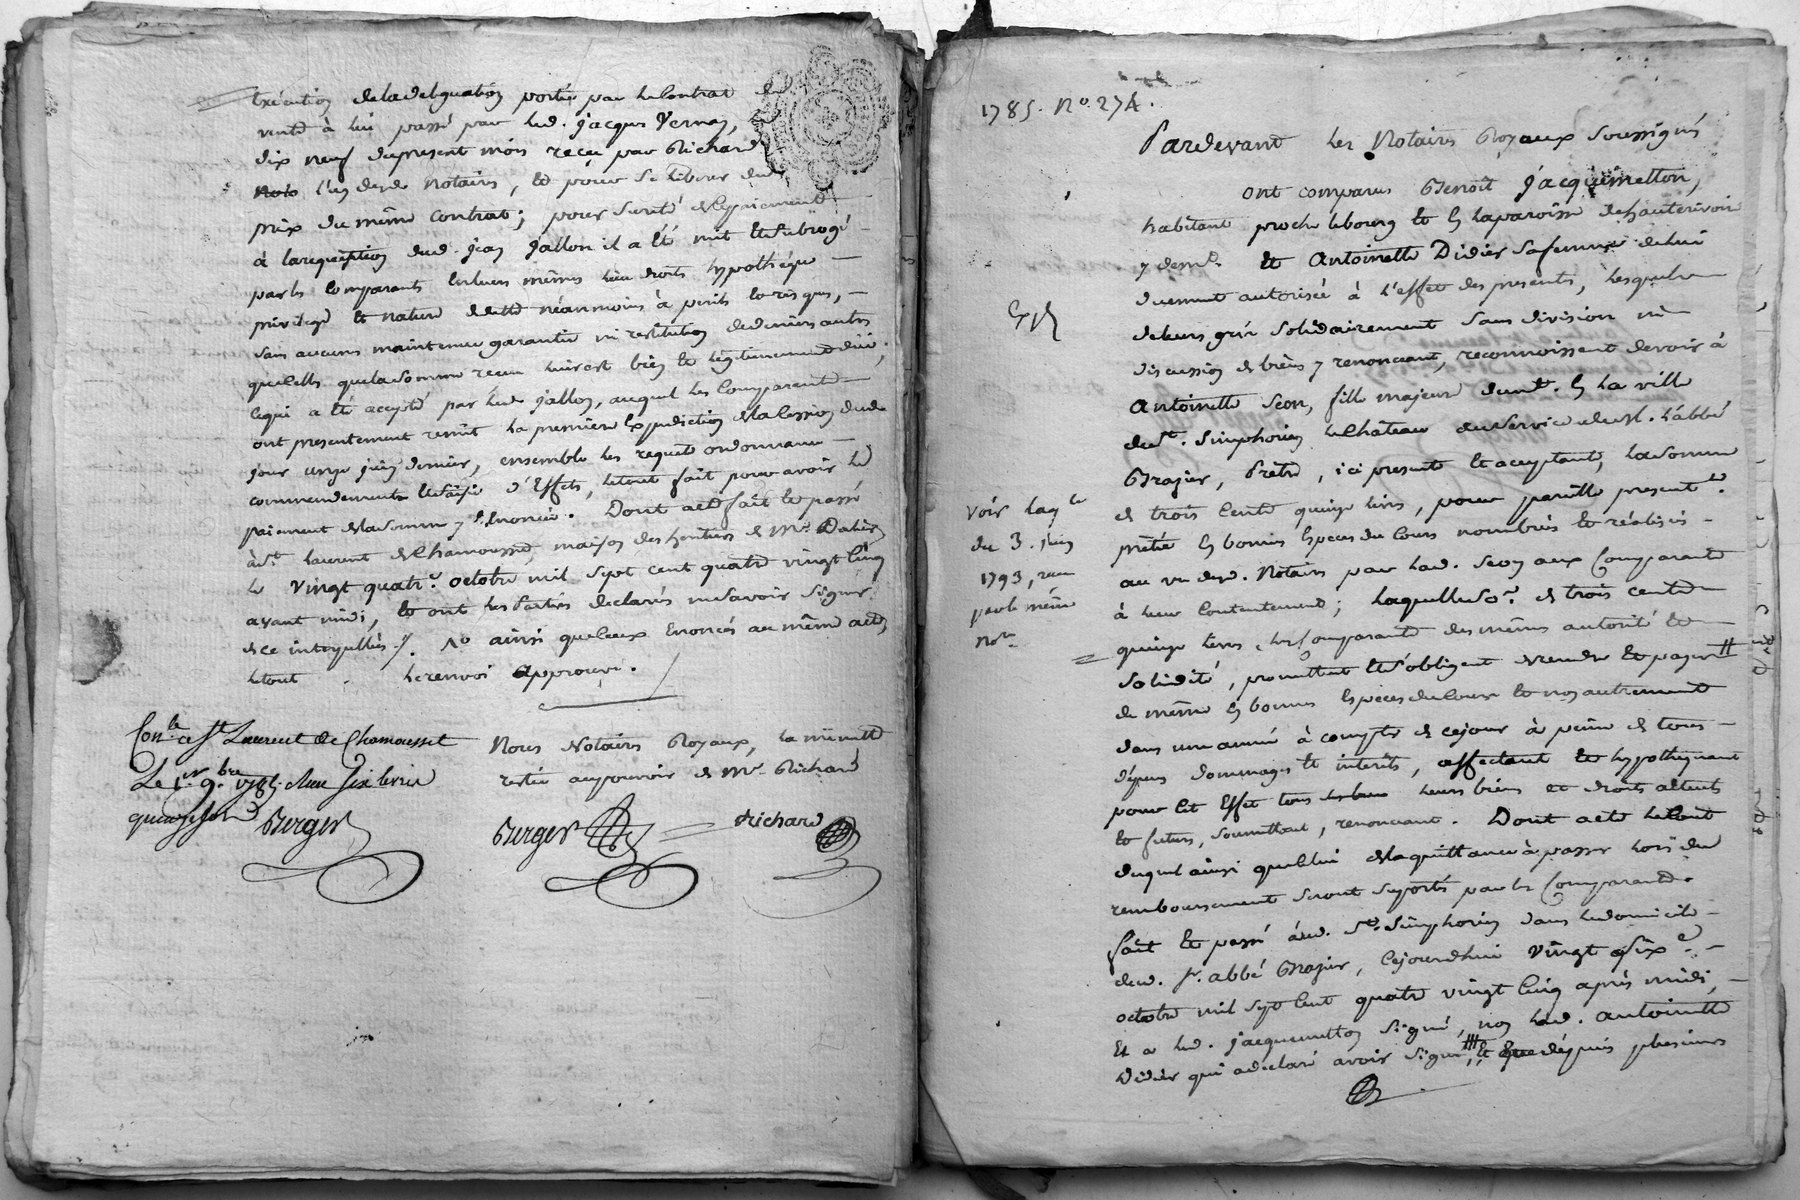 Exécution de la délégation portée par le Contrat de
vente à lui passé par led. Jacques Vernay, le
dix neuf du present mois reçu par Richard
l'un desd. Notaires, et pour se liberer du
prix du même contrat; pour sureté de ce paiement
à la requisition dud. Jean Jallon il a été mit et subrogé
par les Comparants en leurs mêmes lieu droits hypothéque
privilege et nature de dette néanmoins à perils et risques,
sans aucune maintenue garantie ni restitution de deniers autres
que celle que la somme recue leur est bien et légitimement due;
ce qui a été accepté par led. Jallon, auquel les Comparants
ont presentement remit la premiere Expedition de la cession dud.
jour onze juin dernier, ensemble les requete ordonnance
commandements et saisie d'Effets, le tout fait pour avoir le
paiement de la somme y Enoncée. Dont acte fait et passé
à St. Laurent de Chamousset, maison des heritiers de Mr.
le vingt quatre. octobre mil sept cent quatre vingt cinq
avant midi, et ont les Parties declarés ne savoir signer
de ce interpellées ainsi que ceux Enoncés au même acte,
le tout le renvoi approuvé.
Con.le a St Laurent de Chamousset
Le 1er 9.bre 1785. Reçu six livres
quinze sols
Berger
Nous Notaires Royaux, la minutte
restée au pouvoir de Mr. Richard
Berger
Richard
1785. No. 274.
Pardevant les Notaires Royaux soussignés
ont comparus Benoît Jacquemetton,
habitant proche le bourg et En la paroisse de hauterivoir
y demt. et Antoinette Didier sa femme de lui
duement autorisée à l'effet des presentes, lesquels
de leurs gré solidairement sans division ni
discussion de biens y renonçant, reconnoissent devoir à
Antoinette Seon, fille majeure demt. En la ville
de St. Simphorien le Château au service de M. l'abbé
Bragier, Prêtre, ici presente et acceptant, la somme
de trois Cents quinze livres, pour pareille present.t
pretée En bonnes Especes du Cours nombrées et réalisées
au vu desd. Notaires par lad. Seon aux Comparants
à leur Contentement; laquelle so.e de trois cents
quinze livres, les Comparants des mêmes autorité et
solidité, promettent et s'obligent de rendre et payer
de même En bonnes Especes du Cours et non autrement
dans une année à compter de ce jour à peine de tous
dépens dommages et interets, affectant et hyppothequant
pour cet Effet tous leurs biens et droits actuels
et futurs, soumettant, renonçant. Dont acte le Cout
duquel ainsi que celui de la quittance à passer lors du
remboursement seront suportés par les Comparants.
fait et passé aud. St. Simphorien dans le domicile
dud. Sr. abbé Bragier, Cejourdhui vingt six.e
octobre mil sept cent quatre vingt cinq après midi,
Et a led. Jacquemetton signé, non lad. antoinette
Didier qui a declaré avoir signé, et que depuis plusieurs
Exp.
Voir la q.ce
du 3. juin
1793, reçue
par le même
Nore.